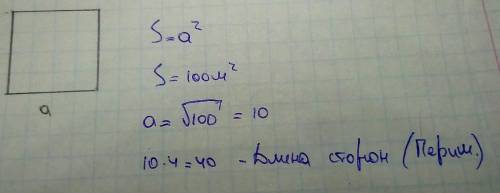 S=a²
S=100м²
a
a=√100=10
10·4=40 - Длина сторон (Перим.)